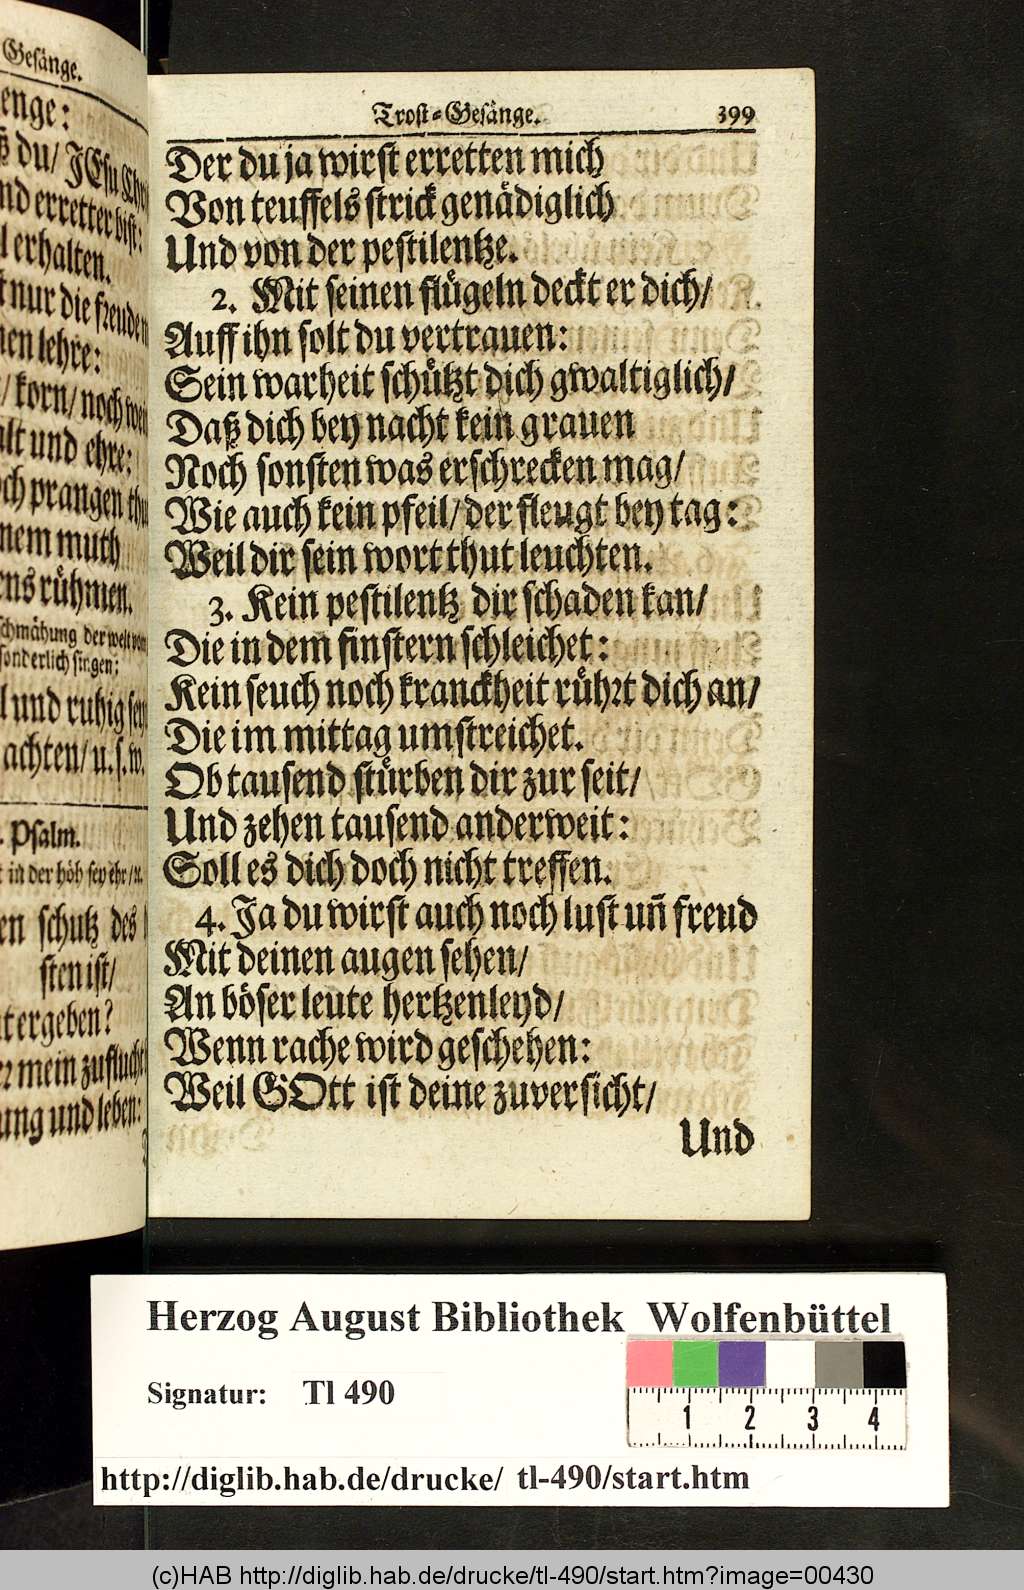 Gesänge.
enge:
ß du/ JEsu
nd erretter bist:
erhalten.
nur die freude
nen lehre:
korn/ noch
alt und ehre:
och prangen
nem muth
rühmen.
schmähung der welt
sonderlich singen:
und ruhig
achten/ u.s.w.
Psalm.
in der höh sey ehr/
schutz des
sten ist/
ergeben?
mein zuflucht
ung und leben:
Trost-Gesänge. 399
Der du ja wirst erretten mich
Von teuffels strick genädiglich
Und von der pestilentze.
2. Mit seinen flügeln deckt er dich/
Auff ihn solt du vertrauen:
Sein warheit schützt dich gwaltiglich/
Daß dich bey nacht kein grauen
Noch sonsten was erschrecken mag/
Wie auch kein pfeil/ der fleugt bey tag:
Weil dir sein wort thut leuchten.
3. Kein pestilentz dir schaden kan/
Die in dem finstern schleichet:
Kein seuch noch kranckheit rührt dich an/
Die im mittag umstreichet.
Ob tausend stürben dir zur seit/
Und zehen tausend anderweit:
Soll es dich doch nicht treffen.
4. Ja du wirst auch noch lust uñ freud
Mit deinen augen sehen/
An böser leute hertzenleyd/
Wenn rache wird geschehen:
Weil GOtt ist deine zuversicht/
Und
Herzog August Bibliothek Wolfenbüttel
Signatur: Tl 490
1 2 3 4
http://diglib.hab.de/drucke/ tl-490/start.htm
(c)HAB http://diglib.hab.de/drucke/tl-490/start.htm?image=00430